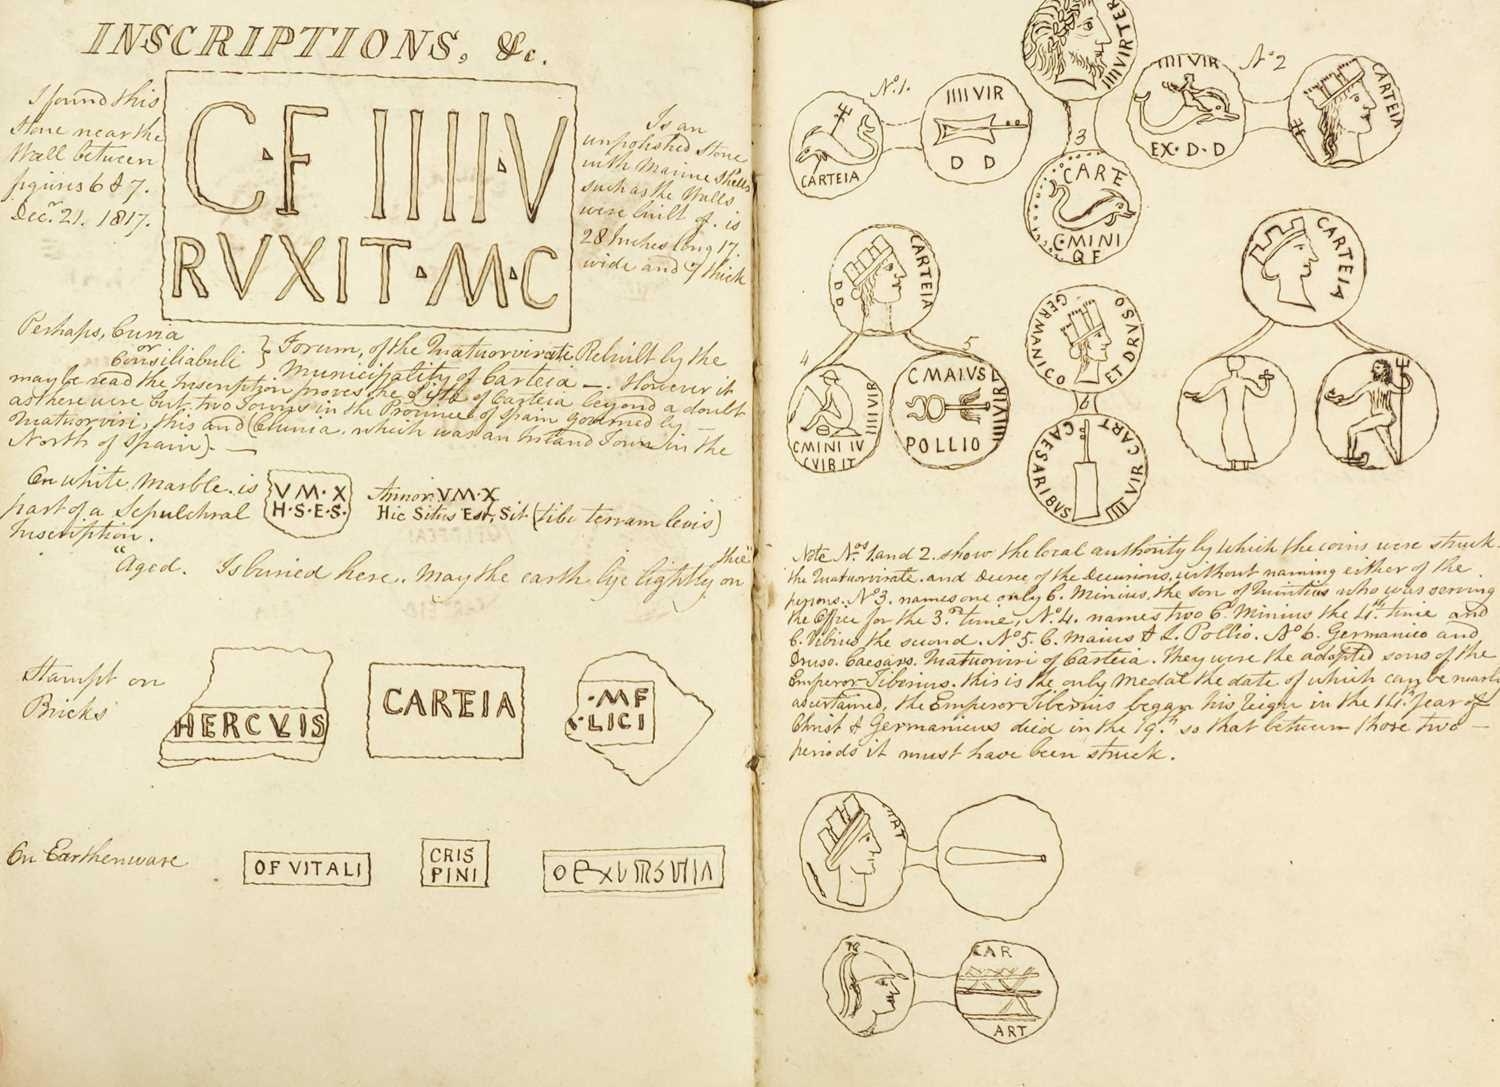 INSCRIPTIONS, &c.
I found this
stone near the
Wall between
figures 6 & 7.
Decr. 21. 1817.
C·F IIII·V
RVXIT·M·C
Is an
unpolished stone
with Marine Shells
such as the Walls
were built of. is
28 Inches long 17
wide and 7 thick
Perhaps, Curia
or
Consiliabuli } Forum, of the Quatuorvirate Rebuilt by the
Municipality of Carteia —. However it
may be read the Inscription proves the Site of Carteia beyond a doubt
as there were but two Towns in the Province of Spain governed by
Quatuorviri, this and (Clunia. which was an Inland Town in the
North of Spain). —
On white Marble. is
part of a Sepulchral
Inscription.
VM·X
H·S·E·S·
Annor. VM·X
Hic Situs Est, Sit (tibi terram levis)
thee"
"Aged. Is buried here.. May the earth lye lightly on
Stampt on
Bricks
HERCVIS
CARTEIA
·MF
·LICI
On Earthenware
OF VITALI
CRIS
PINI
No. 1.
CARTEIA
IIII VIR
D D
IIII VIR TER
3
CARTE
C·MINI
Q F
No 2
IIII VIR
EX·D·D
CARTEIA
CARTEIA
D D
4
C MINI IV
C VIB IT
IIII VIR
5
C MAIVS L
POLLIO
IIII VIR
GERMANICO
ET DRVSO
6
CAESARIBVS
IIII VIR CART
CARTEIA
Note Nos. 1. and 2. show the local authority by which the coins were struck.
the Quatuorvirate. and Decree of the Decurions, without naming either of the
persons. No 3. names one only C. Minius, the son of Quintius who was serving
the Office for the 3rd. time, No. 4. names two C. Minius the 4th. time and
C. Vibius the second. No 5. C. Maius & L. Pollio. No 6. Germanico and
Druso. Caesars. Quatuorviri of Carteia. they were the adopted sons of the
Emperor Tiberius. this is the only Medal the date of which can be nearly
ascertained, the Emperor Tiberius began his Reign in the 14th. Year of
Christ & Germanicus died in the 19th. so that between those two —
periods it must have been struck.
CAR
ART